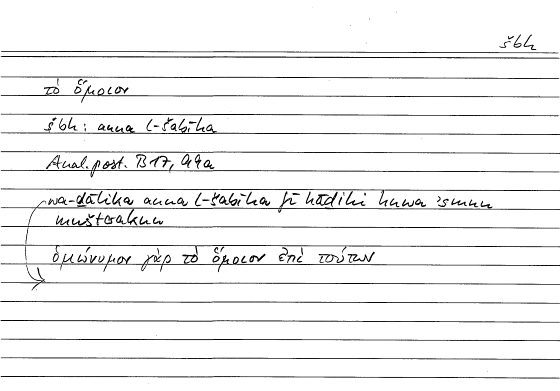 šbh
τὸ ὅμοιον
šbh: anna l-šabīha
Anal. post. B 17, 99a
wa-ḏālika anna l-šabīha fī hāḏihi huwa 'smun
muštarakun
ὁμώνυμον γὰρ τὸ ὅμοιον ἐπὶ τούτων